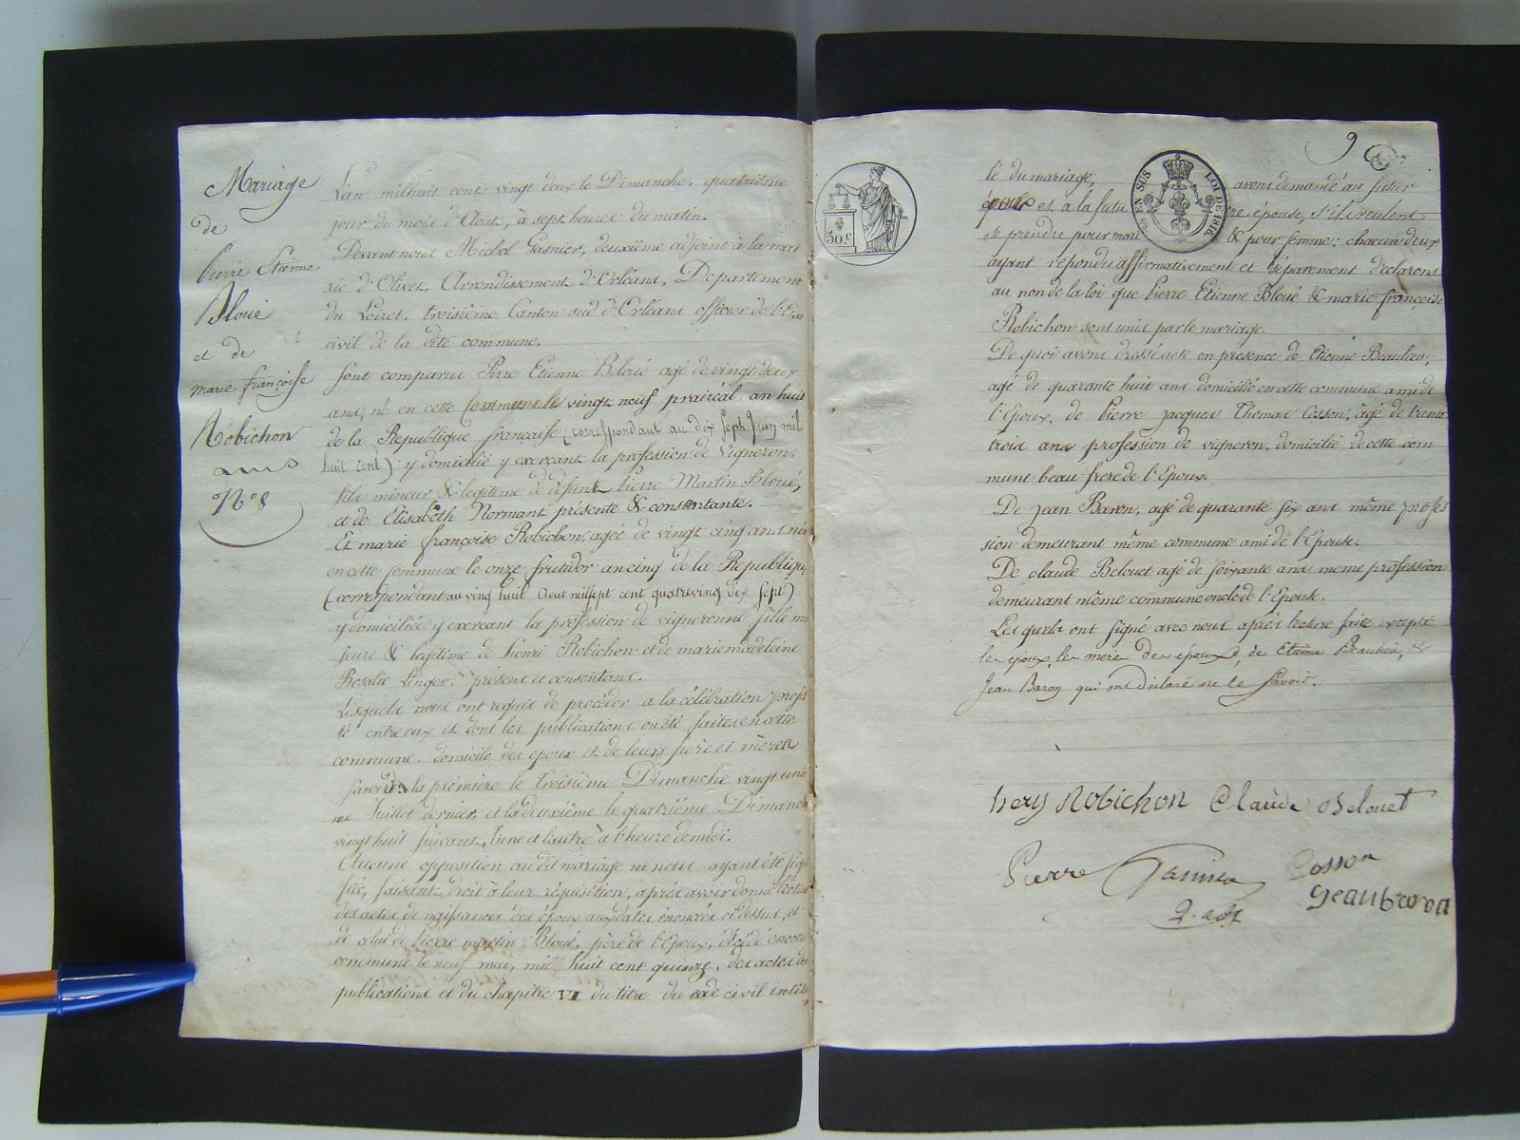 Mariage
de
Pierre Etienne
Bloué
et de
marie françoise
Robichon
ans
N° 8
L'an mil huit cent vingt deux le Dimanche, quatrième
jour du mois d'Aout, à sept heures du matin.
Devant nous Michel Garnier, deuxième adjoint à la mai
rie d'Olivet, Arrondissement d'Orléans, Departement
du Loiret, troisième Canton sud d'Orléans officier de l'Etat
civil de la dite commune.
Sont comparus Pirre Etienne Bloué agé de vingt deux
ans, né en cette Commune le vingt neuf prairéal an huit
de la Republique française (correspondant au dix sept Juin mil
huit cent) y domicilié y exercant la profession de Vigneron,
fils mineur & legitime de défunt Pierre Martin Bloué,
et de Elisabeth Normant présente & consentante.
Et marie françoise Robichon, agée de vingt cinq ans, née
en cette commune le onze frutidor an cinq de la Republique,
(correspondant au vingt huit Aout mil sept cent quatre vingt dix sept)
y domiciliée y exercant la profession de vigneronne fille ma
jeure & legitime de henri Robichon et de marie madeleine
Rosalie Linger, présent et consentant.
Lesquels nous ont requis de procéder a la célébration projet
té entre eux et dont les publications on été faites en cette
commune, domicile des epoux et de leurs pere et mere
savoir la première le troisième Dimanche vingt une
me Juillet dernier, et la deuxième le quatrième Dimanche
vingt huit suivant, l'une et l'autre à l'heure de midi.
Aucune opposition au dit mariage ne nous ayant été signi
fiée, faisant droit à leur requisition, après avoir donné lecture
des actes de naissances des époux aux dates énoncées ci dessus, et
de celui de Pierre martin Bloué, père de l'Epoux, décédé en cette
commune le neuf mai, mil huit cent quinze, des actes de
publications et du chapitre VI du titre du code civil intitu
9
30 c
EN SUS
LOI DE 1816
lé du mariage, avons demandé au futur
époux et à la future épouse, s'ils veulent
se prendre pour mari & pour femme: chacun deux
ayant repondu affirmativement et séparement declarons
au nom de la loi que Pierre Etienne Bloué & marie françoise
Robichon sont unis par le mariage.
De quoi avons dressé acte en presence de Etienne Beaulieu,
agé de quarante huit ans domicilié en cette commune ami de
l'Epoux, de Pierre jacques Thomas Cosson, âgé de trente
trois ans profession de vigneron, domicilié de cette com
mune beau frere de l'Epoux.
De jean Baron, agé de quarante six ans même profes
sion demeurant même commune ami de l'Epouse.
De claude Belouet agé de soixante ans meme profession
demeurant même commune oncle de l'Epouse.
Lesquels ont signé avec nous après lecture faite excepté
les époux, les mere des époux, de Etienne Beaulieu, &
Jean Baron qui ont déclaré ne le savoir.
hery Robichon Claude Belouet
Pierre Cosson
Garnier
2. adj